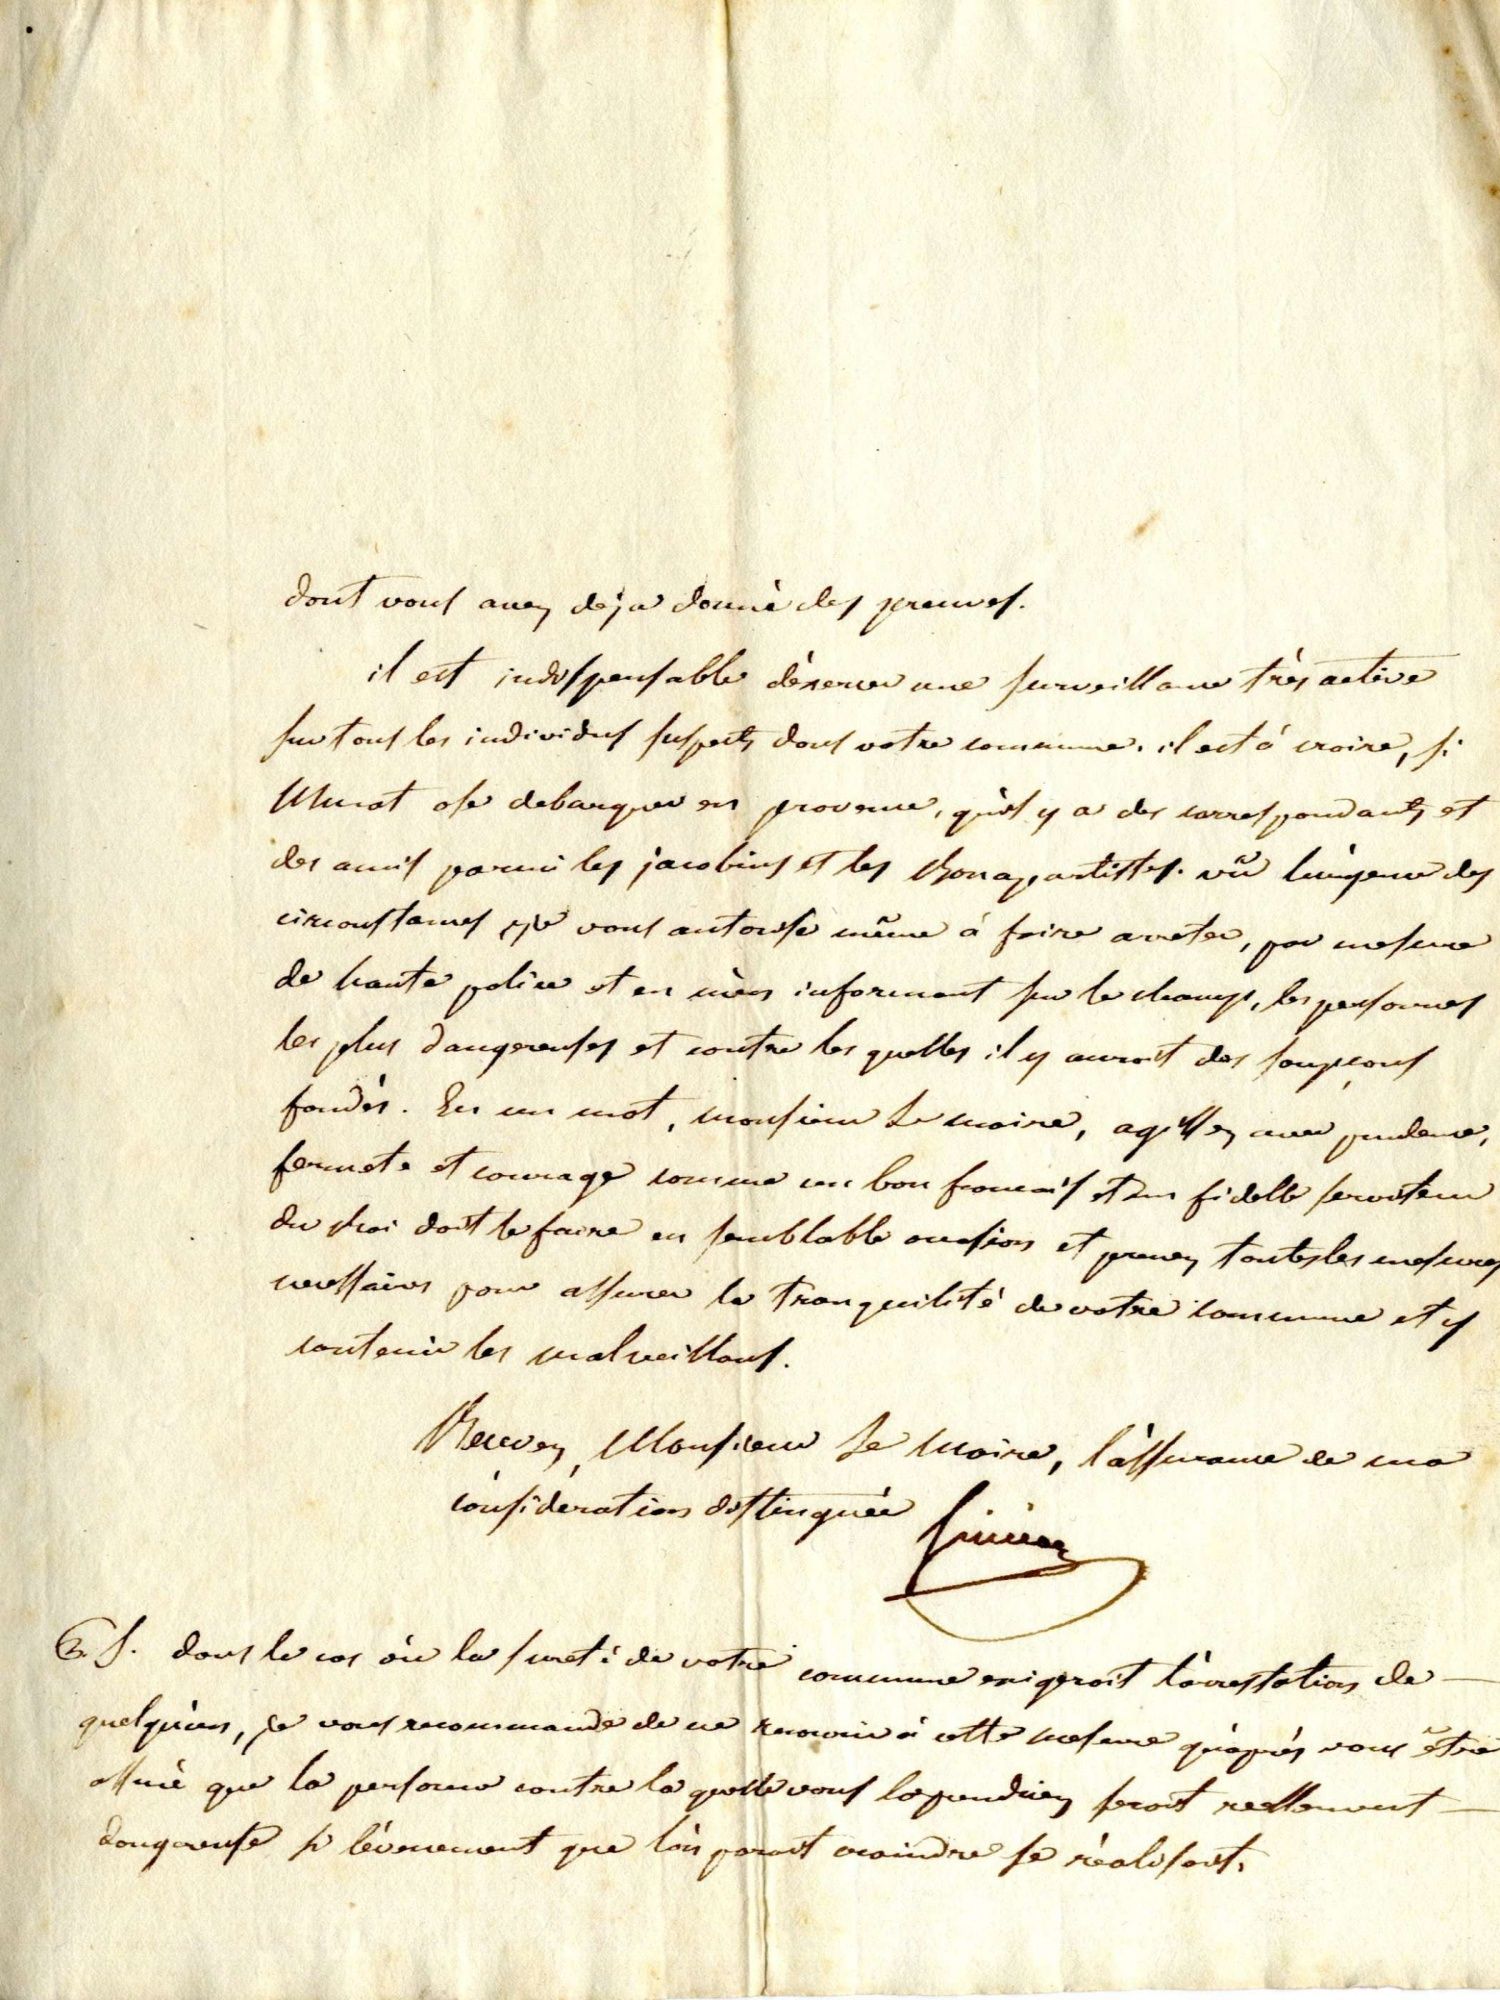 dont vous avez déja donné des preuves.
il est indispensable d'éxercer une surveillance très active
sur tous les individus suspects dans votre commune. il est à croire, si
Murat ose debarquer en provence, qu'il y a des correspondants et
des amis parmi les jacobins et les Bonapartistes. vû l'urgence des
circonstances je vous autorise même à faire arreter, par mesure
de haute police et en m'en informant sur le champ, les personnes
les plus dangereuses et contre les quelles il y auroit des soupçons
fondés. En un mot, monsieur Le maire, agissez avec prudence,
fermeté et courage comme un bon francais et un fidelle serviteur
du Roi doit le faire en semblable occasion et prenez toutes les mesures
necessaires pour assurer la tranquilité de votre commune et y
contenir les malveillans.
Recevez, Monsieur Le Maire, l'assurance de ma
consideration distinguée
P. S. dans le cas où la sureté de votre commune exigeroit l'arrestation de
quelqu'un, je vous recommande de ne recourir à cette mesure qu'après vous être
assuré que la personne contre la quelle vous la prendriez seroit reellement
dangereuse si l'évenement que l'on paroit craindre se réalisoit.